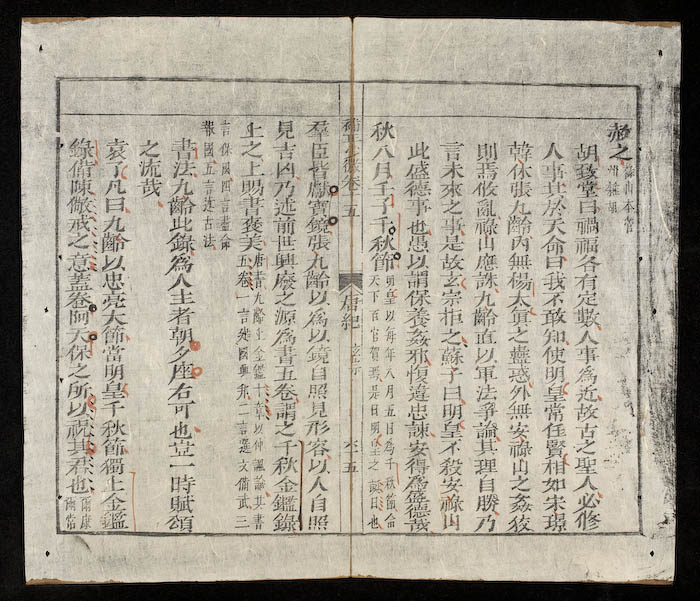 赦之祿山本營州雜胡
胡致堂曰禍福各有定數人事爲近故古之聖人必修
人事其於天命曰我不敢知使明皇常任賢相如宋璟
韓休張九齡內無楊太眞之蠱惑外無安祿山之姦狡
則焉攸亂祿山應誅九齡直以軍法爭論其理自勝乃
言未來之事是故玄宗拒之蘇子曰明皇不殺安祿山
此盛德事也愚以謂保養姦邪愎違忠諫安得爲盛德哉
秋八月壬子千秋節明皇以每年八月五日爲千秋節令天下百官賀獻是日明皇之誕日也
卷二五 唐紀 玄宗 六十五
羣臣皆獻寳鏡張九齡以爲以鏡自照見形容以人自照
見吉凶乃述前世興廢之源爲書五卷謂之千秋金鑑錄
上之上賜書褒美唐書九齡上金鑑十章以伸諷諭其書五卷一言 二言選文備武三
言保國四言 報國五言 古法
書法九齡此錄爲人主者朝夕座右可也豈一時賦頌
之流哉
袁了凡曰九齡以忠亮大節當明皇千秋節獨上金鑑
錄備陳儆戒之意蓋卷阿天保之所以祝其君也